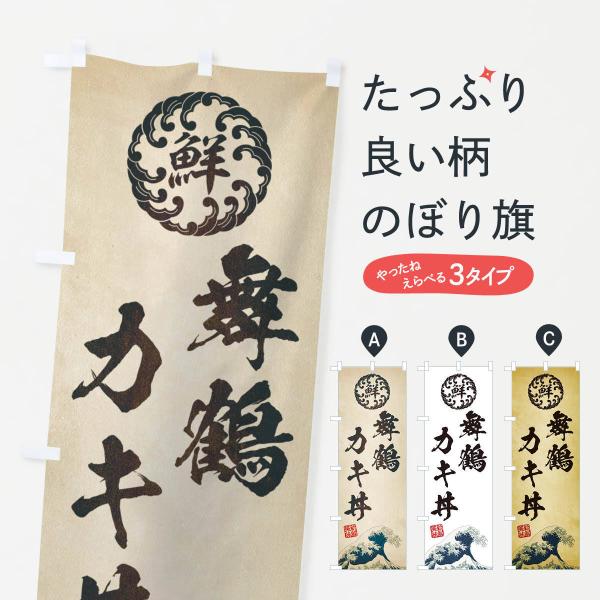 鮮
舞鶴
カキ丼
たっぷり
良い柄
のぼり旗
やったね
えらべる
3タイプ
A
B
C
鮮
舞鶴
カキ丼
鮮
舞鶴
カキ丼
鮮
舞鶴
カキ丼